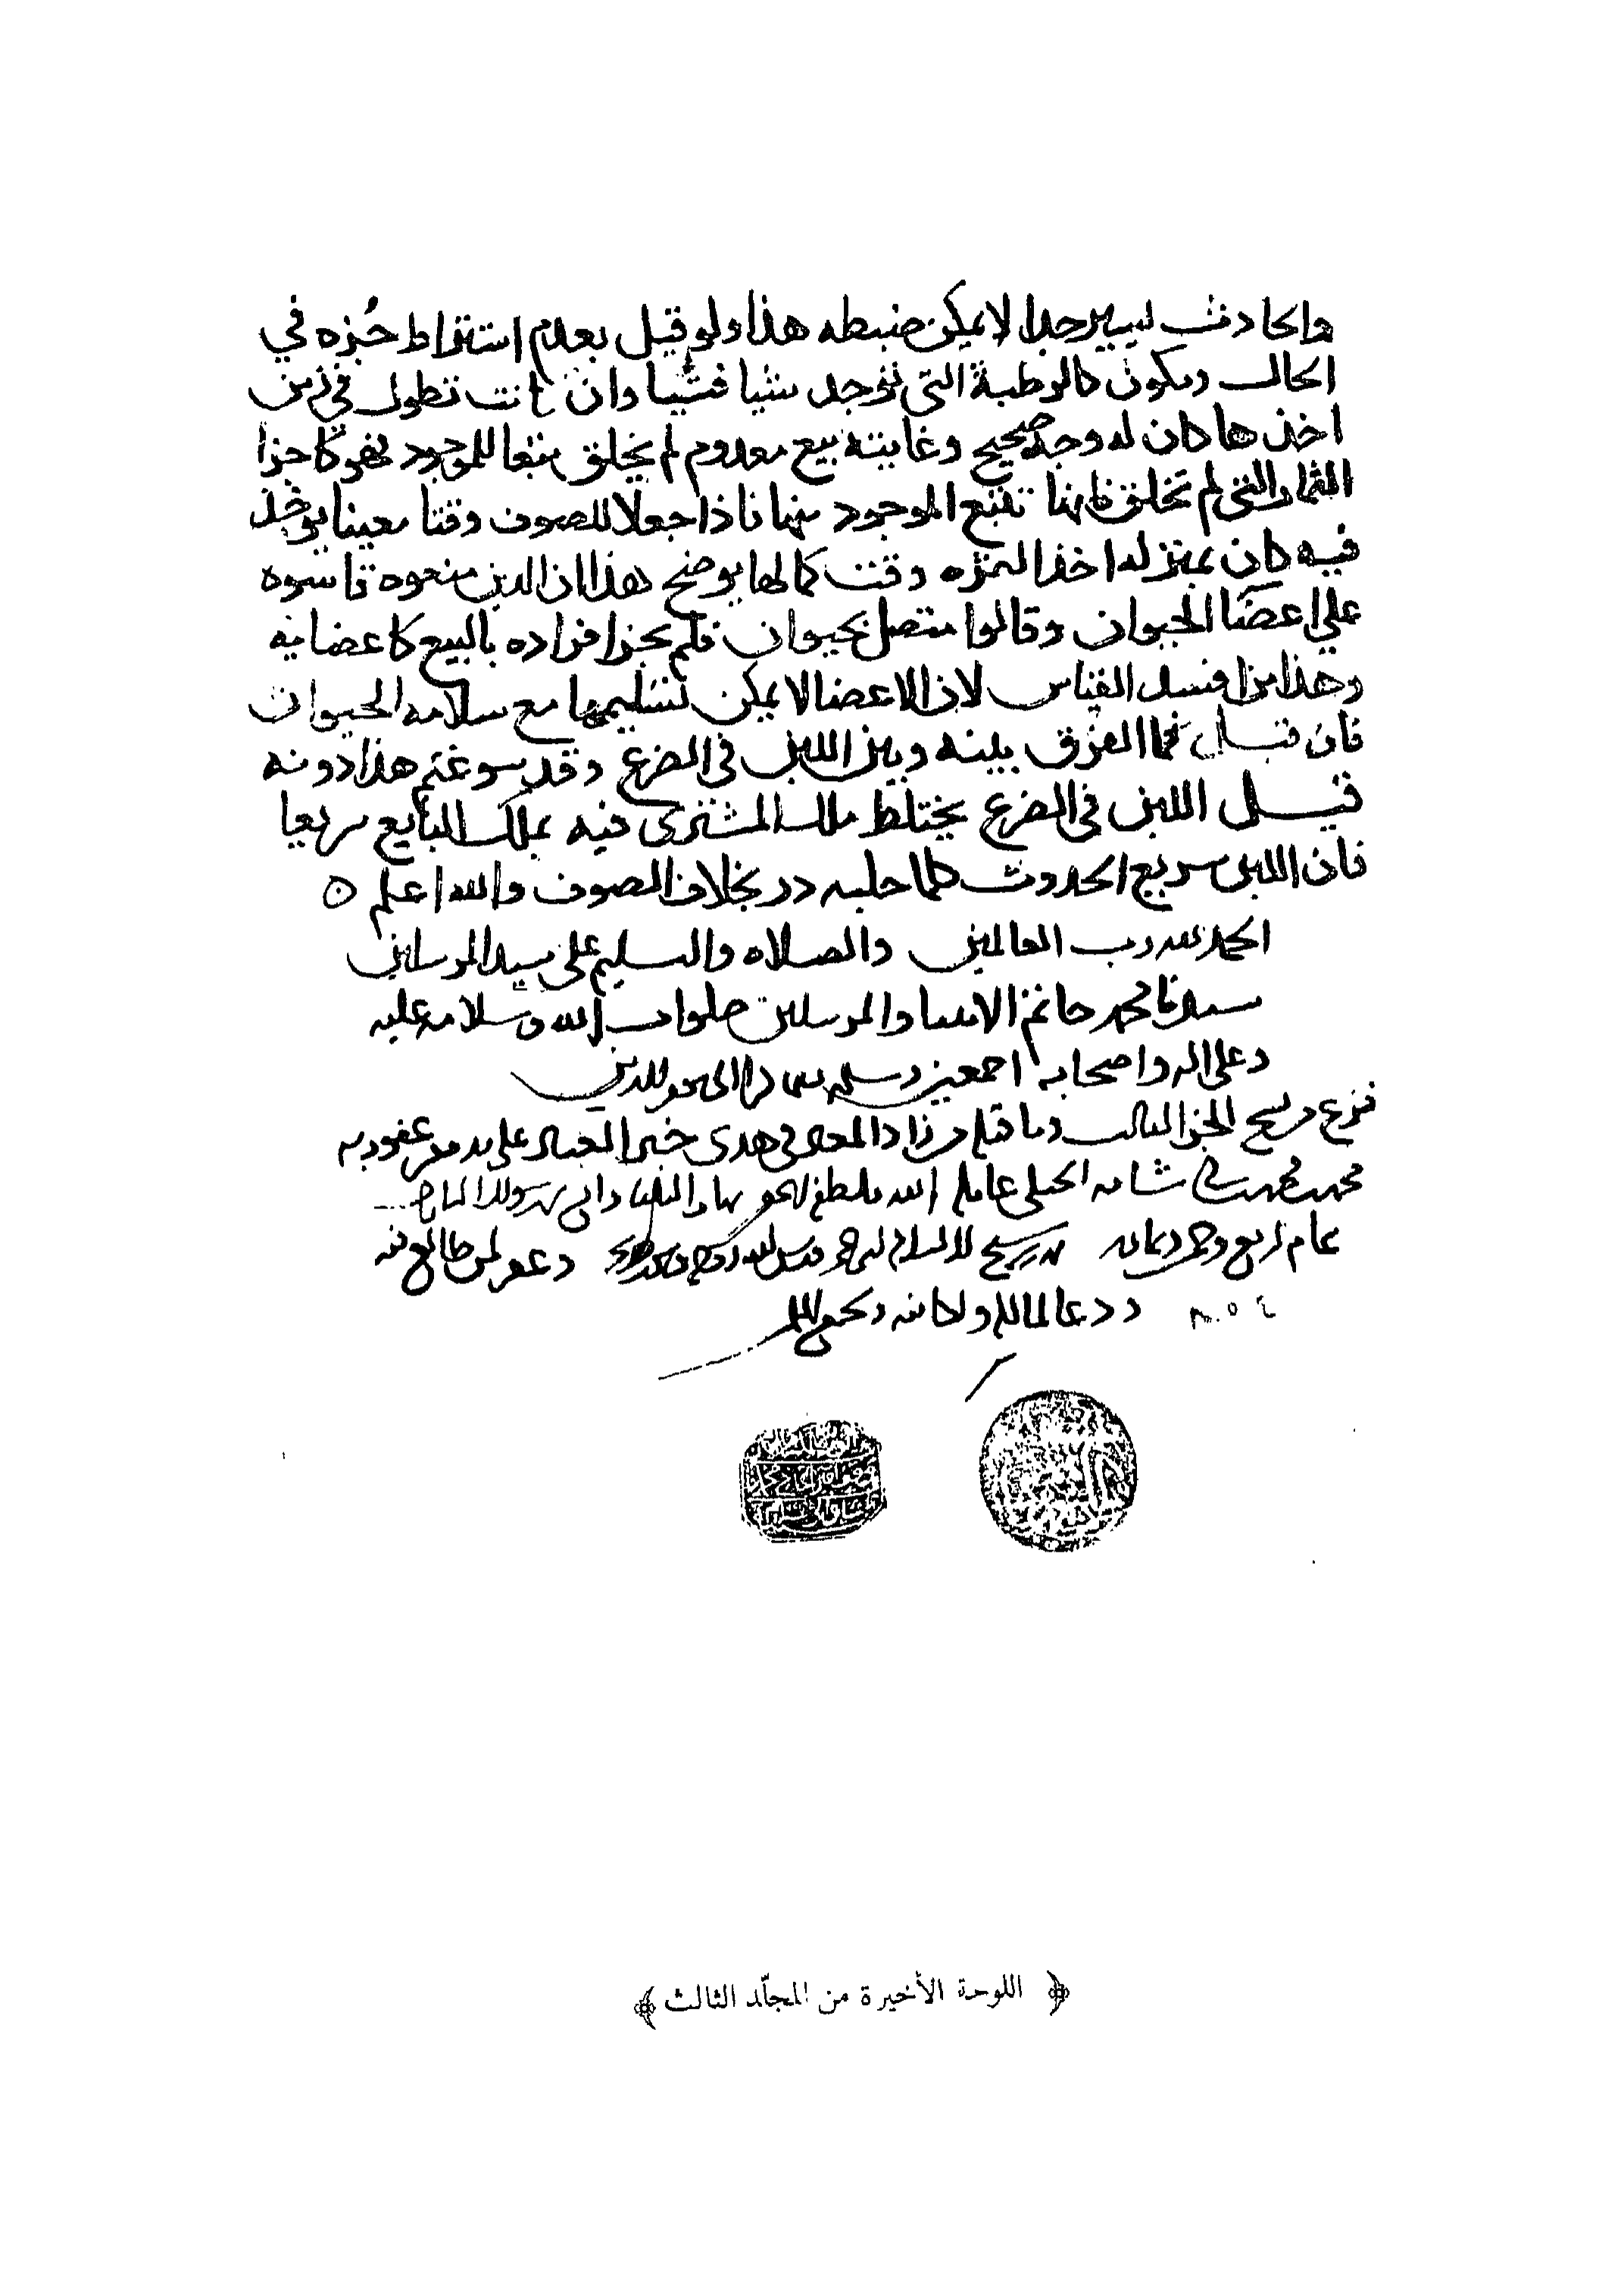 والحادث يسير جدا لا يمكن ضبطه هذا ولو قيل بعدم اشتراط جُزه في
الحال ويكون كالرطبة التي تؤخذ شيا فشيا وان كانت تطول في زمن
اخذها كان له وجه صحيح وغايته بيع معدوم لم يخلق تبعا للموجود فهو كاجزا
الثمار التي لم تخلق فانها تتبع الموجود منها فاذا جعلا للصوف وقتا معينا يوخذ
فيه كان بمنزلة اخذ الثمره وقت كمالها يوضح هذا ان الذين منعوه قاسوه
علي اعضا الحيوان وقالوا متصل بحيوان فلم يجز افراده بالبيع كاعضايه
وهذا من افسد القياس لان الاعضا لا يمكن تسليمها مع سلامه الحيوان
فان قيل فما الفرق بينه وبين اللبن في الضرع وقد سوغتم هذا دونه
قيل اللبن في الضرع يختلط ملك المشتري فيه بملك البايع سريعا
فان اللبن سريع الحدوث كلما حلبه در بخلاف الصوف والله اعلم ه
الحمد لله رب العالمين والصلاه والتسليم على سيد المرسلين
سيدنا محمد خاتم الانبيا والمرسلين صلوات الله وسلامه عليه
وعلى اله واصحابه اجمعين وسلم الى يوم الدين
فرغ من نسخ الجز الثالث وما قبله من زاد المعاد في هدى خير العباد على يد عفو ربه
محمد بن محمد الحنبلي عامله الله بلطفه
عام اربع وخمسين وثمان مايه وغفر لمن طالع فيه
٨٥٤ ودعا لمالكه ولكاتبه
﴿ اللوحة الأخيرة من المجلّد الثالث ﴾